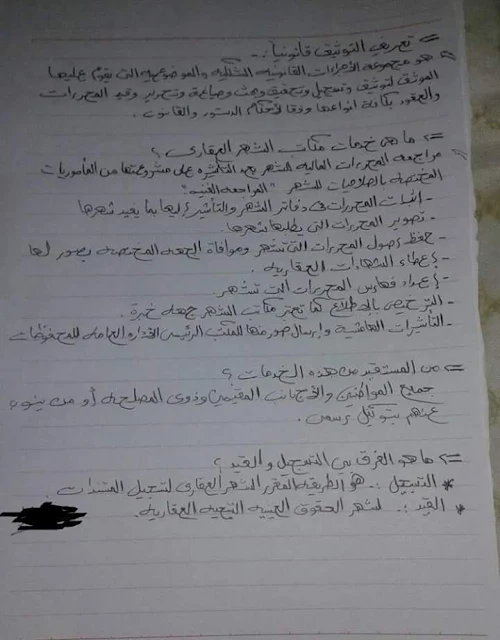 = تعريف التوثيق قانونياً :-
هو مجموعة الإجراءات القانونية الشكلية والموضوعية التي يقوم عليها
الموثق لتوثيق وتسجيل وتحقيق وبحث وصياغة وتحرير وقيد المحررات
والعقود بكافة انواعها وفقا لأحكام الدستور والقانون .
= ما هي خدمات مكاتب الشهر العقارى ؟
مراجعه المحررات الماليه للشهر بعد التأشير على مشروعتها من المأموريات
المختصة بالصلاحيات للشهر " المراجعه الفنيه".
- إثبات المحررات فى دفاتر الشهر والتأشير إليها بما يفيد شهرها
- تصوير المحررات التى يطلبها شهرها.
- حفظ أصول المحررات التى تشهر وموافاة الجهه المختصه بصور لها
- إعطاء الشهادات العقاريه .
- إعداد فهارس المحررات التى تشهر .
- الترخيص بالاطلاع كما تعتبر مكاتب الشهر جهة خبرة .
- التأشيرات الهامشية وإرسال صور منها للمكتب الرئيسى الإداره العامه للمحفوظات
= من المستفيد من هذه الخدمات ؟
جميع المواطنين والأجانب المقيمين وذوى المصلحه أو من ينوب
عنهم بتوكيل رسمى .
= ما هو الفرق بين التسجيل والقيد ؟
* التسجيل :- هو الطريقه المقرر الشهر العقارى لتسجيل المستندات .
* القيد :- لشهر الحقوق العينيه التبعيه العقاريه.